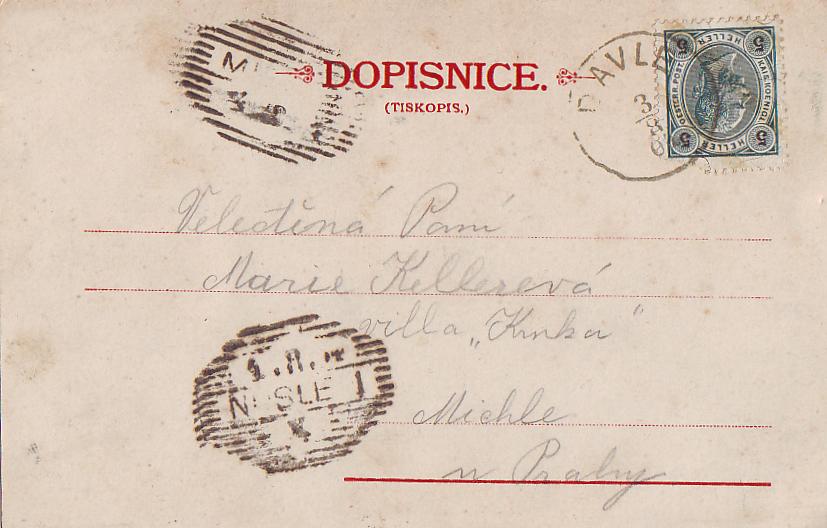 DOPISNICE.
(TISKOPIS.)
DAVLE
3 8
5 HELLER 5
KAIS. KÖNIGL.
OESTERR. POST
5 HELLER 5
Velectěná Paní
Marie Kellerová
villa
Michle
u Prahy
1.8.
NUSLE 1